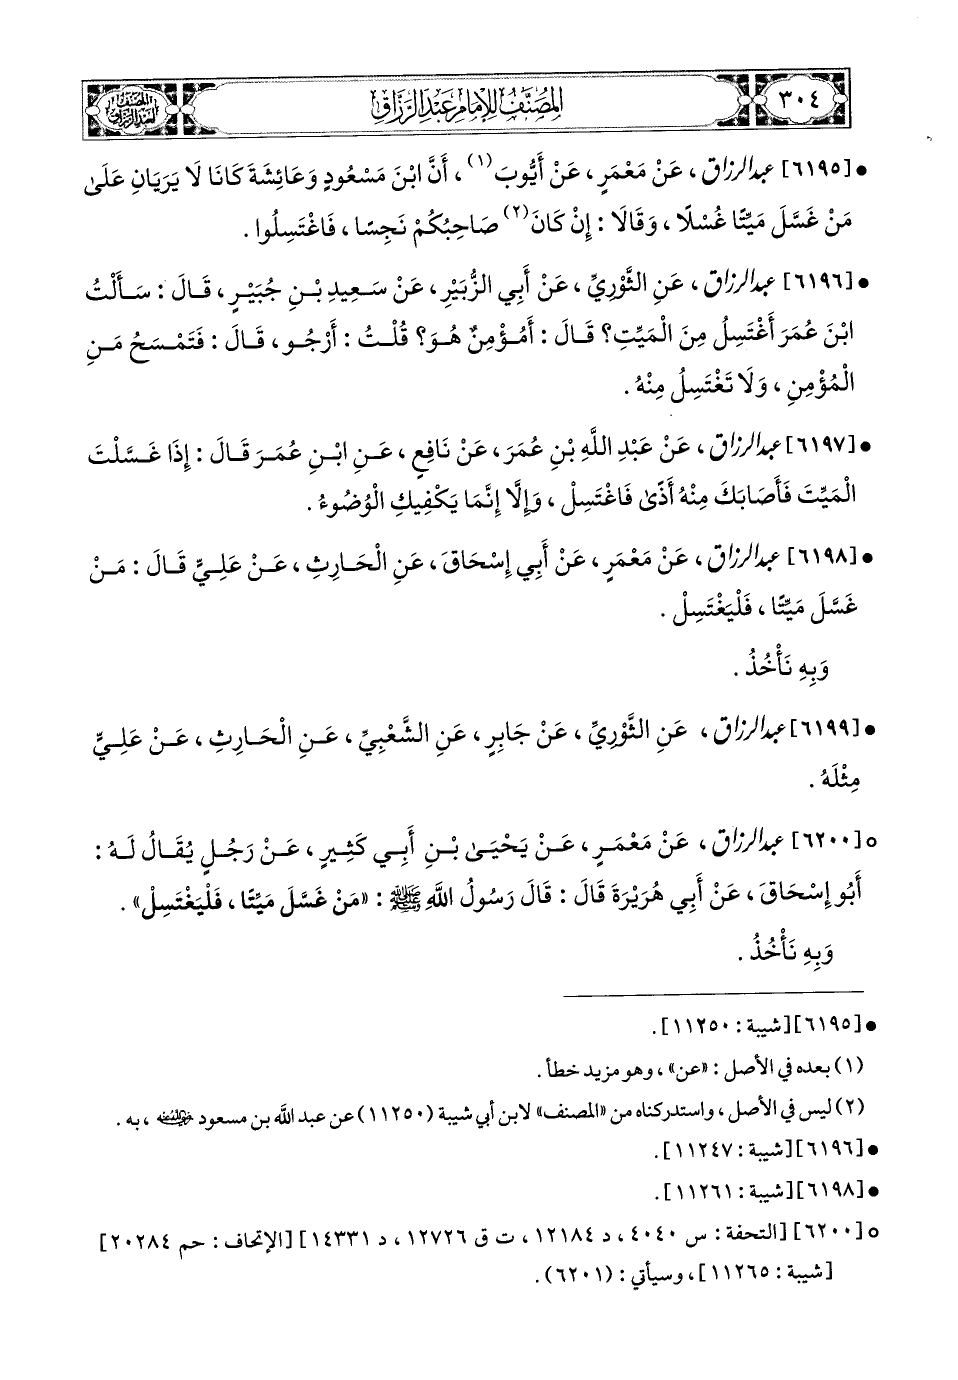 ٣٠٤
المُصَنَّفُ لِلإِمَامِ عَبْدِ الرَّزَّاقِ
• [٦١٩٥] عبد الرزاق، عَنْ مَعْمَرٍ، عَنْ أَيُّوبَ (١)، أَنَّ ابْنَ مَسْعُودٍ وَعَائِشَةَ كَانَا لَا يَرَيَانِ عَلَى
مَنْ غَسَّلَ مَيِّتًا غُسْلًا، وَقَالَا: إِنْ كَانَ (٢) صَاحِبُكُمْ نَجِسًا، فَاغْتَسِلُوا.
• [٦١٩٦] عبد الرزاق، عَنِ الثَّوْرِيِّ، عَنْ أَبِي الزُّبَيْرِ، عَنْ سَعِيدِ بْنِ جُبَيْرٍ، قَالَ: سَأَلْتُ
ابْنَ عُمَرَ أَغْتَسِلُ مِنَ الْمَيِّتِ؟ قَالَ: أَمُؤْمِنٌ هُوَ؟ قُلْتُ: أَرْجُو، قَالَ: فَتَمْسَحُ مَنِ
الْمُؤْمِنِ، وَلَا تَغْتَسِلُ مِنْهُ.
• [٦١٩٧] عبد الرزاق، عَنْ عَبْدِ اللَّهِ بْنِ عُمَرَ، عَنْ نَافِعٍ، عَنِ ابْنِ عُمَرَ قَالَ: إِذَا غَسَّلْتَ
الْمَيِّتَ فَأَصَابَكَ مِنْهُ أَذًى فَاغْتَسِلْ، وَإِلَّا إِنَّمَا يَكْفِيكِ الْوُضُوءُ.
• [٦١٩٨] عبد الرزاق، عَنْ مَعْمَرٍ، عَنْ أَبِي إِسْحَاقَ، عَنِ الْحَارِثِ، عَنْ عَلِيٍّ قَالَ: مَنْ
غَسَّلَ مَيِّتًا، فَلْيَغْتَسِلْ.
وَبِهِ نَأْخُذُ.
• [٦١٩٩] عبد الرزاق، عَنِ الثَّوْرِيِّ، عَنْ جَابِرٍ، عَنِ الشَّعْبِيِّ، عَنِ الْحَارِثِ، عَنْ عَلِيٍّ
مِثْلَهُ.
○ [٦٢٠٠] عبد الرزاق، عَنْ مَعْمَرٍ، عَنْ يَحْيَى بْنِ أَبِي كَثِيرٍ، عَنْ رَجُلٍ يُقَالُ لَهُ:
أَبُو إِسْحَاقَ، عَنْ أَبِي هُرَيْرَةَ قَالَ: قَالَ رَسُولُ اللَّهِ ﷺ: «مَنْ غَسَّلَ مَيِّتًا، فَلْيَغْتَسِلْ».
وَبِهِ نَأْخُذُ.
• [٦١٩٥] [شيبة: ١١٢٥٠].
(١) بعده في الأصل: «عن»، وهو مزيد خطأ.
(٢) ليس في الأصل، واستدركناه من «المصنف» لابن أبي شيبة (١١٢٥٠) عن عبد الله بن مسعود رضي الله عنه، به.
• [٦١٩٦] [شيبة: ١١٢٤٧].
• [٦١٩٨] [شيبة: ١١٢٦١].
○ [٦٢٠٠] [التحفة: س ٤٠٤٠، د ١٢١٨٤، ت ق ١٢٧٢٦، د ١٤٣٣١] [الإتحاف: حم ٢٠٢٨٤]
[شيبة: ١١٢٦٥]، وسيأتي: (٦٢٠١).